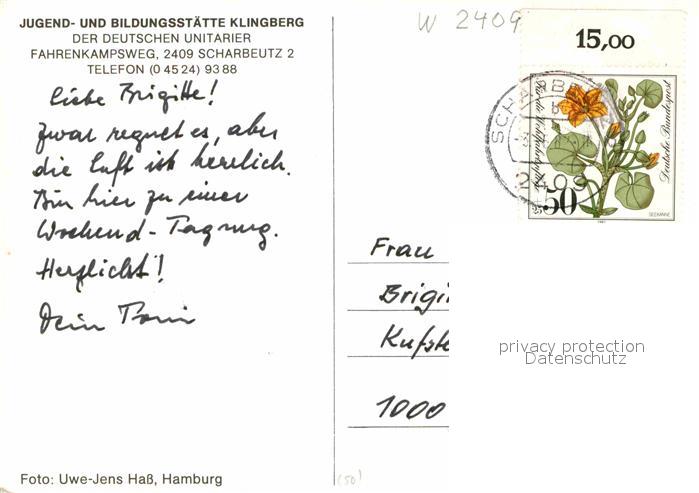 JUGEND- UND BILDUNGSSTÄTTE KLINGBERG
DER DEUTSCHEN UNITARIER
FAHRENKAMPSWEG, 2409 SCHARBEUTZ 2
TELEFON (0 45 24) 93 88
W 2409
15,00
Liebe Brigitte!
Zwar regnet es, aber
die Luft ist herrlich.
Bin hier zu einer
Wochend-Tagung.
Herzlichst!
Dein Toni
Deutsche Bundespost
50
SEEKANNE
2409
Frau
Brigi
Kufste
1000
privacy protection
Datenschutz
Foto: Uwe-Jens Haß, Hamburg
(50)